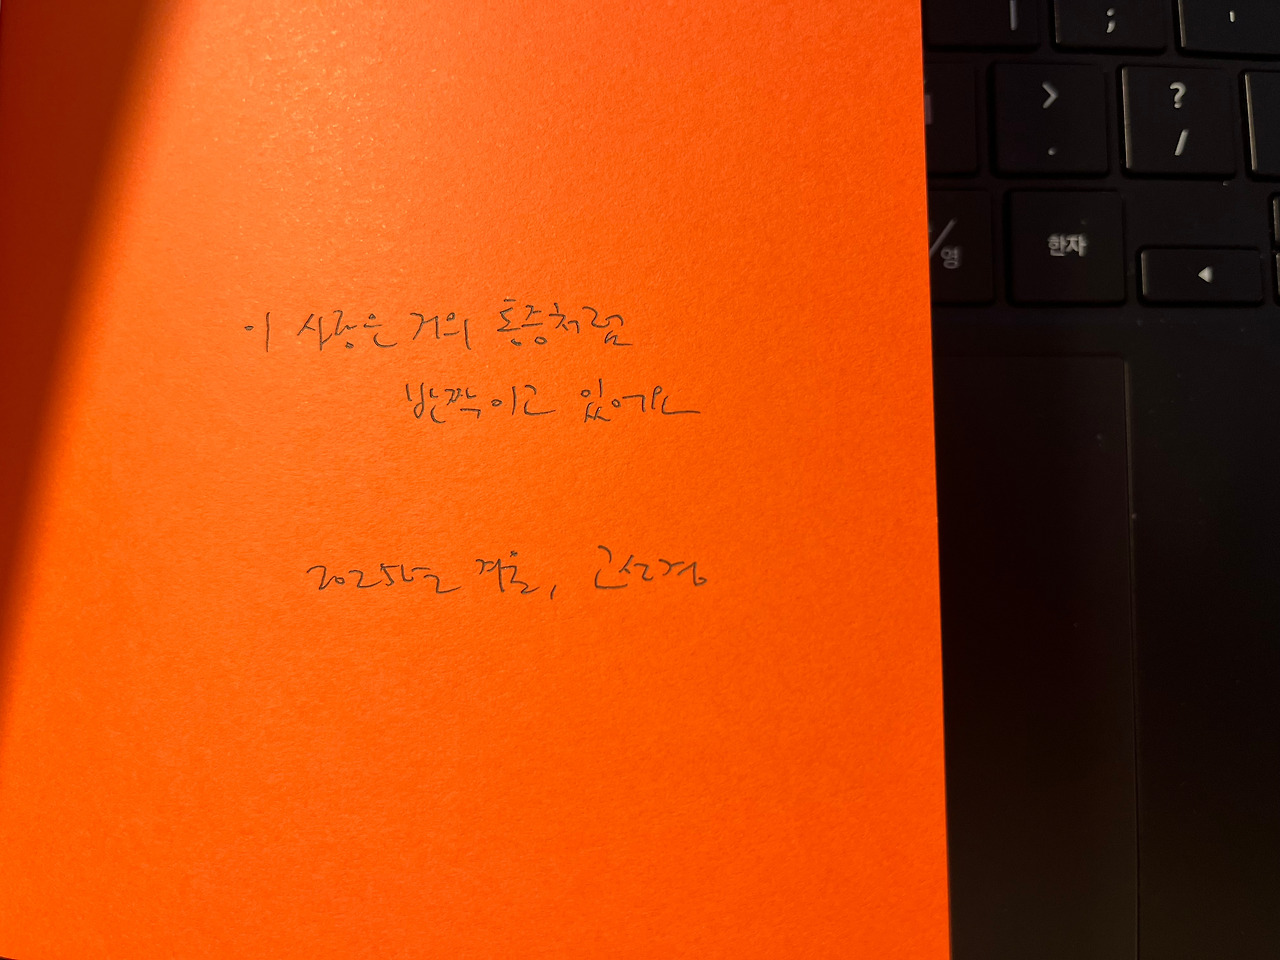 이 사랑은 거의 통증처럼
반짝이고 있어요
2025년 겨울, 고선경
;
>
.
?
/
영
한자
◀